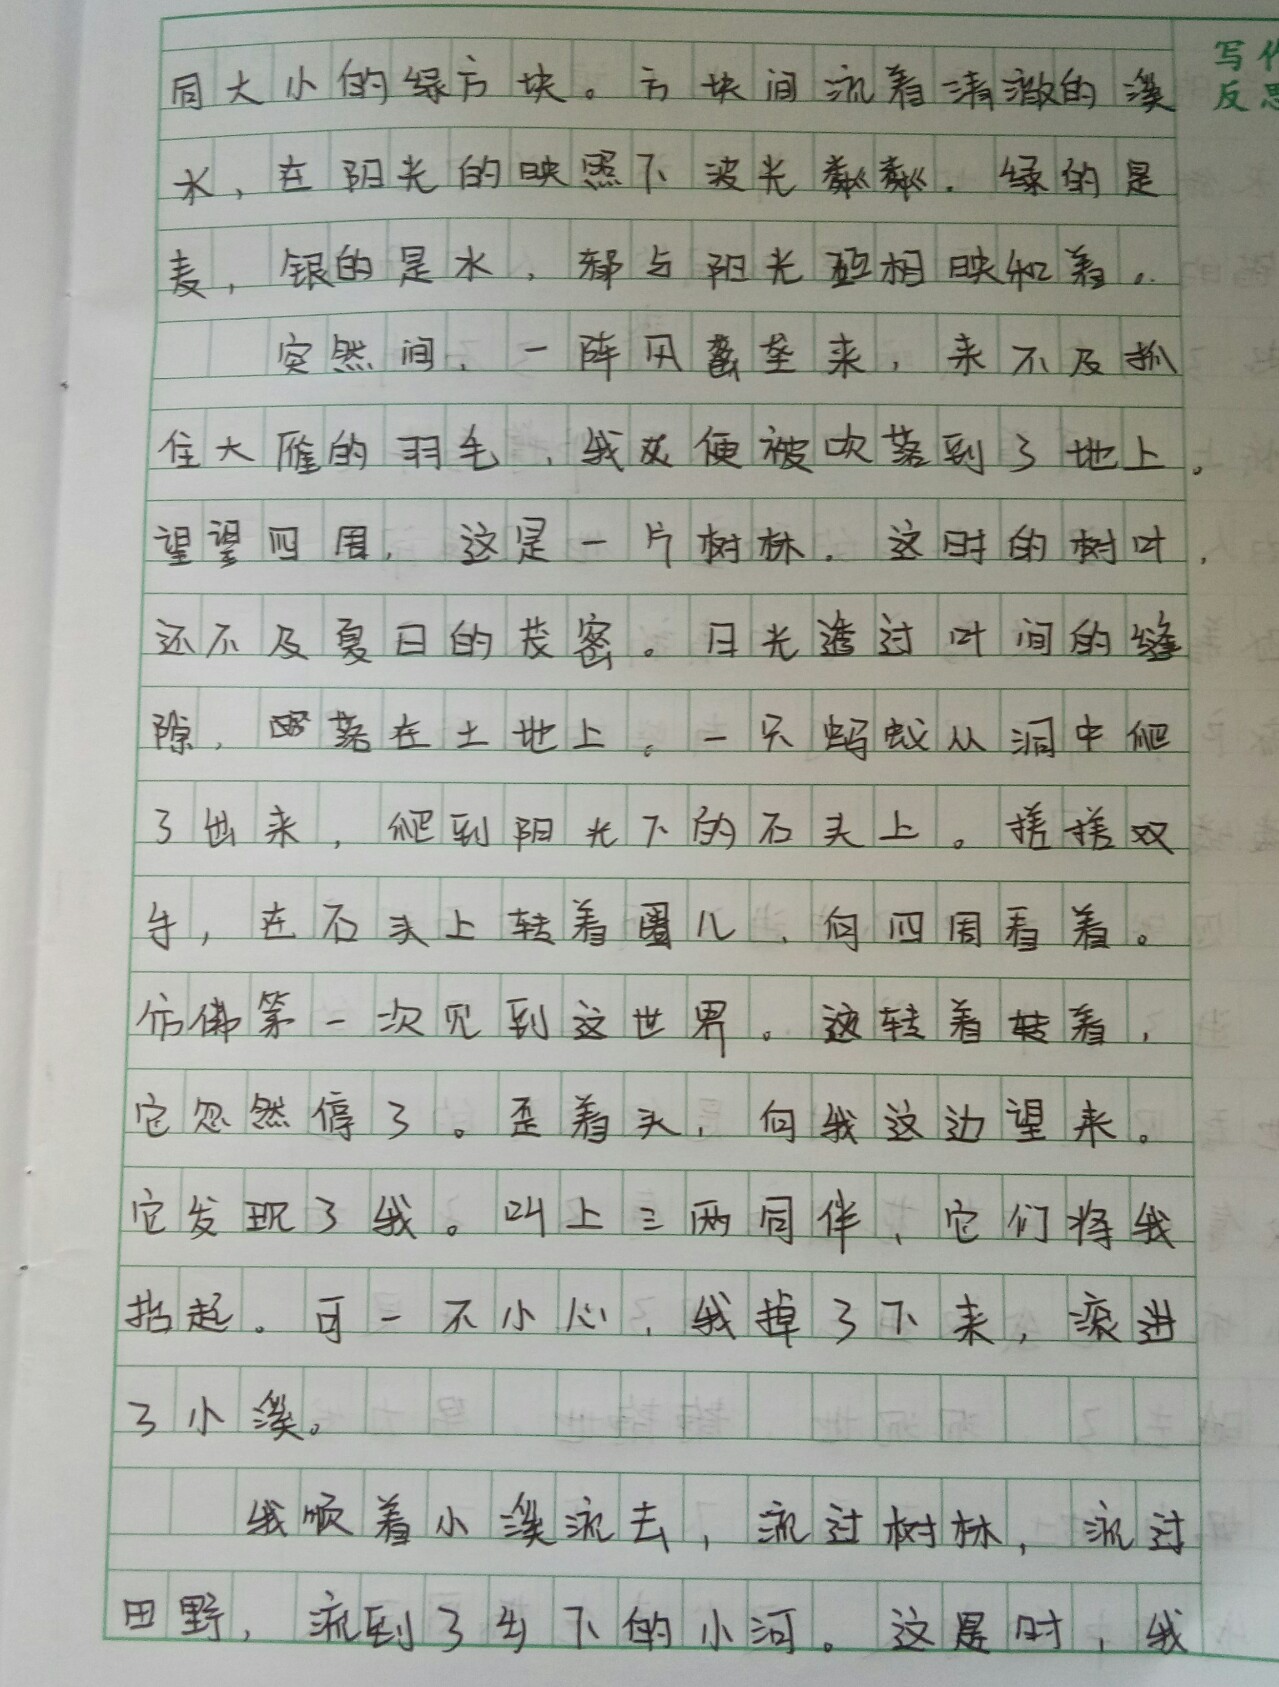 同大小的绿方块。方块间流着清澈的溪
写作
反思
水，在阳光的映照下波光粼粼。绿的是
麦，银的是水，都与阳光互相映和着。
突然间，一阵风袭来，来不及抓
住大雁的羽毛，我便被吹落到了地上。
望望四周，这是一片树林。这时的树叶，
还不及夏日的茂密。日光透过叶间的缝
隙，落在土地上。一只蚂蚁从洞中爬
了出来，爬到阳光下的石头上。搓搓双
手，在石头上转着圈儿，向四周看着。
仿佛第一次见到这世界。这转着转着，
它忽然停了。歪着头，向我这边望来。
它发现了我。叫上三两同伴，它们将我
抬起。可一不小心，我掉了下来，滚进
了小溪。
我顺着小溪流去，流过树林，流过
田野，流到了乡下的小河。这是时，我